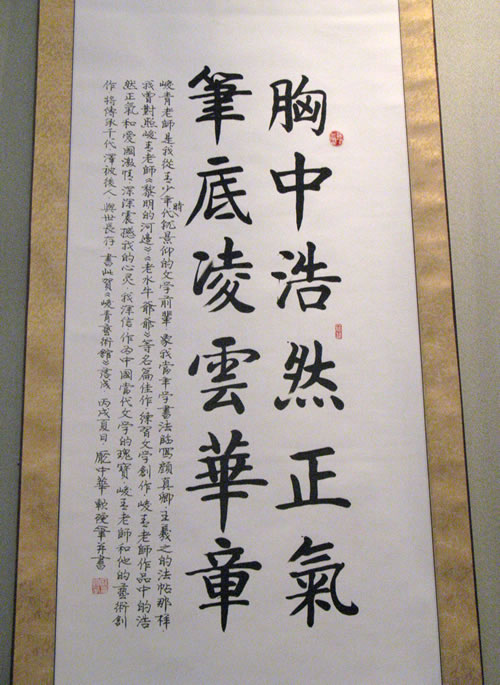 胸中浩然正氣
筆底凌雲華章
峻青老師是我從青少年時代就景仰的文学前輩 象我當年学書法臨寫顏真卿·王羲之的法帖那样
我曾對照峻青老師《黎明的河邊》《老水牛爺爺》等名篇佳作·練習文学創作·峻青老師作品中的浩
然正氣和愛國激情·深深震撼我的心灵·我深信·作为中國當代文学的瑰寶·峻青老師和他的藝術創
作 將傳承千代 澤被後人 與世長存·書此賀《峻青藝術館》落成 丙戌夏日 龐中華 軟硬筆并書